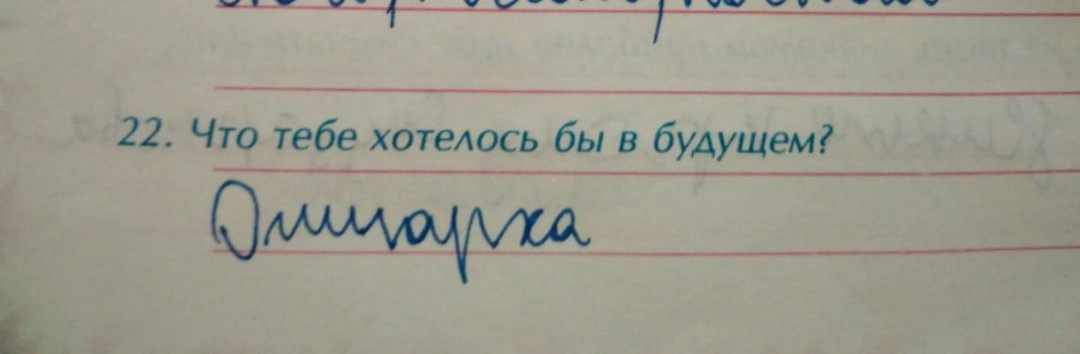 22. Что тебе хотелось бы в будущем?
Олигарха